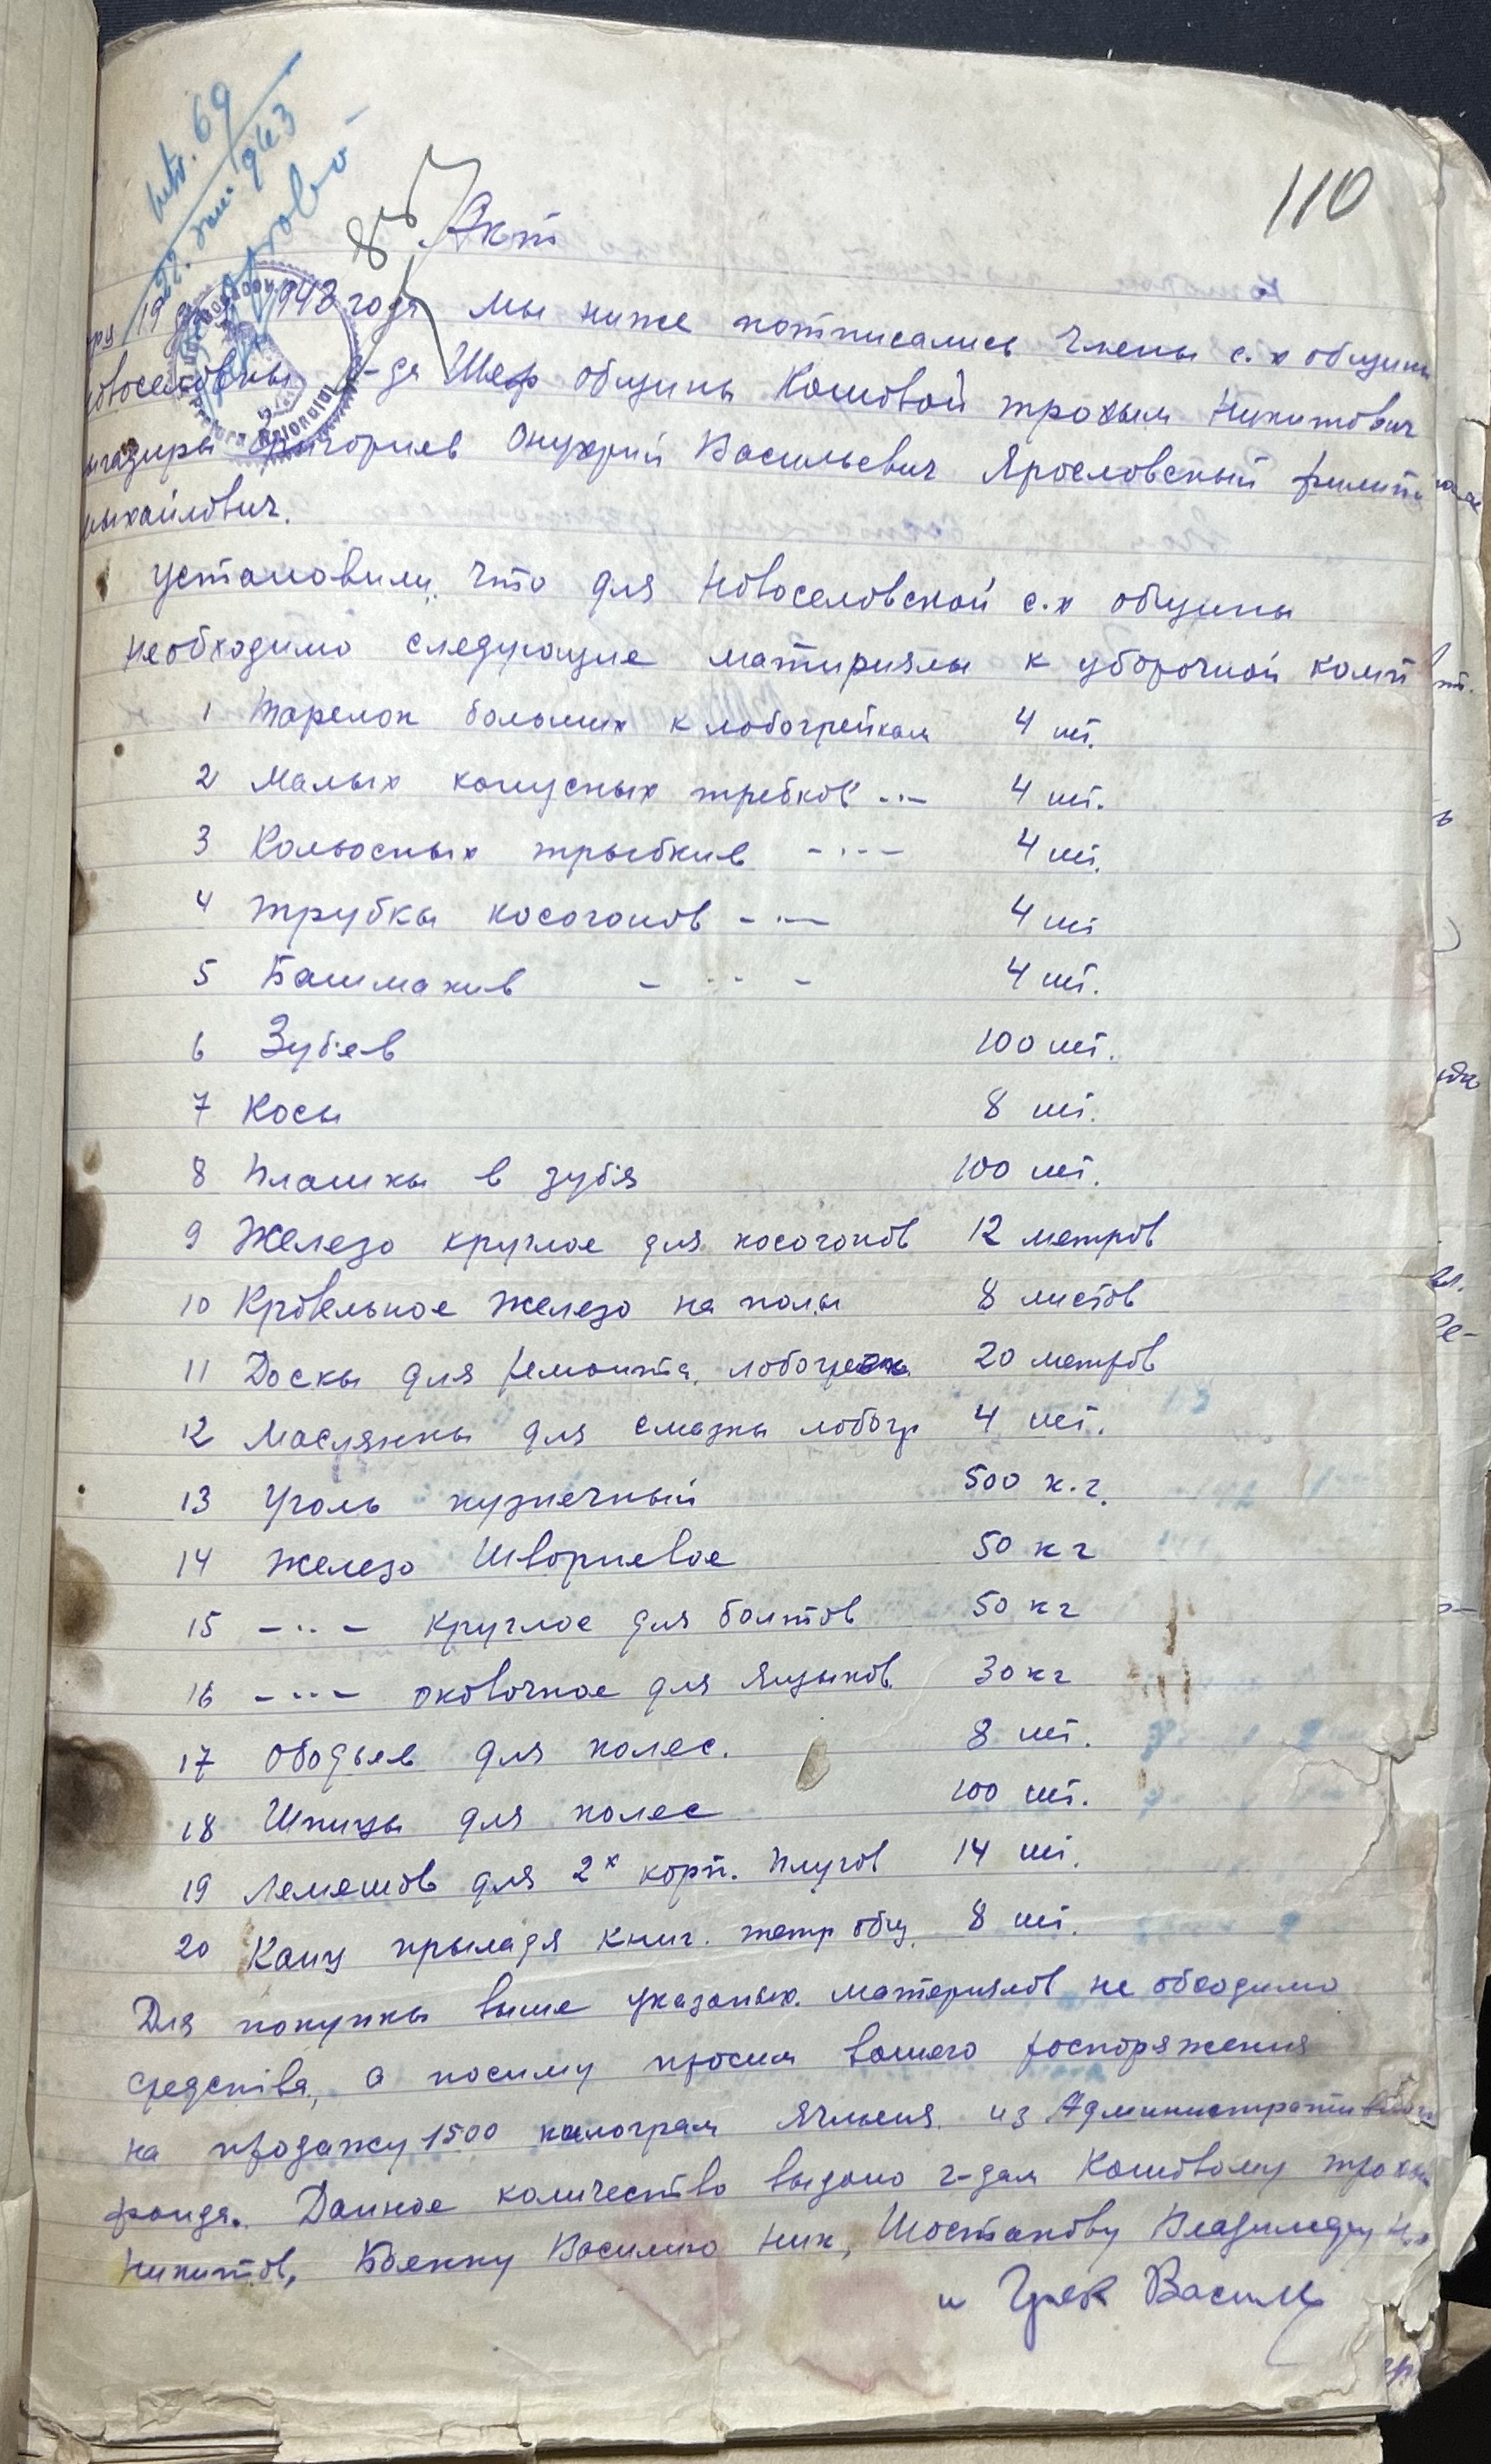 110
Intr. 69
22. 943
85
Акт
19 1943 года мы ниже потписались Члены с. х общины
г-да Шеф общины Кошовой трохым Никитович
Григориев Онуфрий Васильевич Ярословский филип
михайлович.
Установили, что для Новоселовской с.х общины
необходимо следующие матириялы к уборочной комп
1 Тарелок больших к лобогрейкам 4 шт.
2 Малых конусных трибков -..- 4 шт.
3 Кольосных трыбкив -..- 4 шт.
4 Трубкы косогонов -..- 4 шт
5 Башмакив -..- 4 шт.
6 Зубев 100 шт.
7 Косы 8 шт.
8 Плашкы в зубя 100 шт.
9 Железо круглое для косогонов 12 метров
10 Кровельное железо на полы 8 листов
11 Доскы для ремонта, лобогреек 20 метров
12 Маслянкы для смазкы лобогр 4 шт.
13 Уголь кузнечный 500 к.г.
14 Железо Шворневое 50 кг
15 -..- круглое для болтов 50 кг
16 -..- оковочное для Ящыков. 30 кг
17 Ободьев для колес. 8 шт.
18 Шпицы для колес 100 шт.
19 Лемешов для 2х корп. плугов 14 шт.
20 Канц прыладя книг. тетр общ. 8 шт.
Для покупкы выше указаных. материялов не обходимо
средства, а посиму просим вашего роспоряжения
на продажу 1500 килограм Ячменя. из Административного
фонда. Данное количество выдано г-дам Кошовому трохым
Никитов, Боенку Василию Ник, Шостакову Владимеру
и Грек Васил